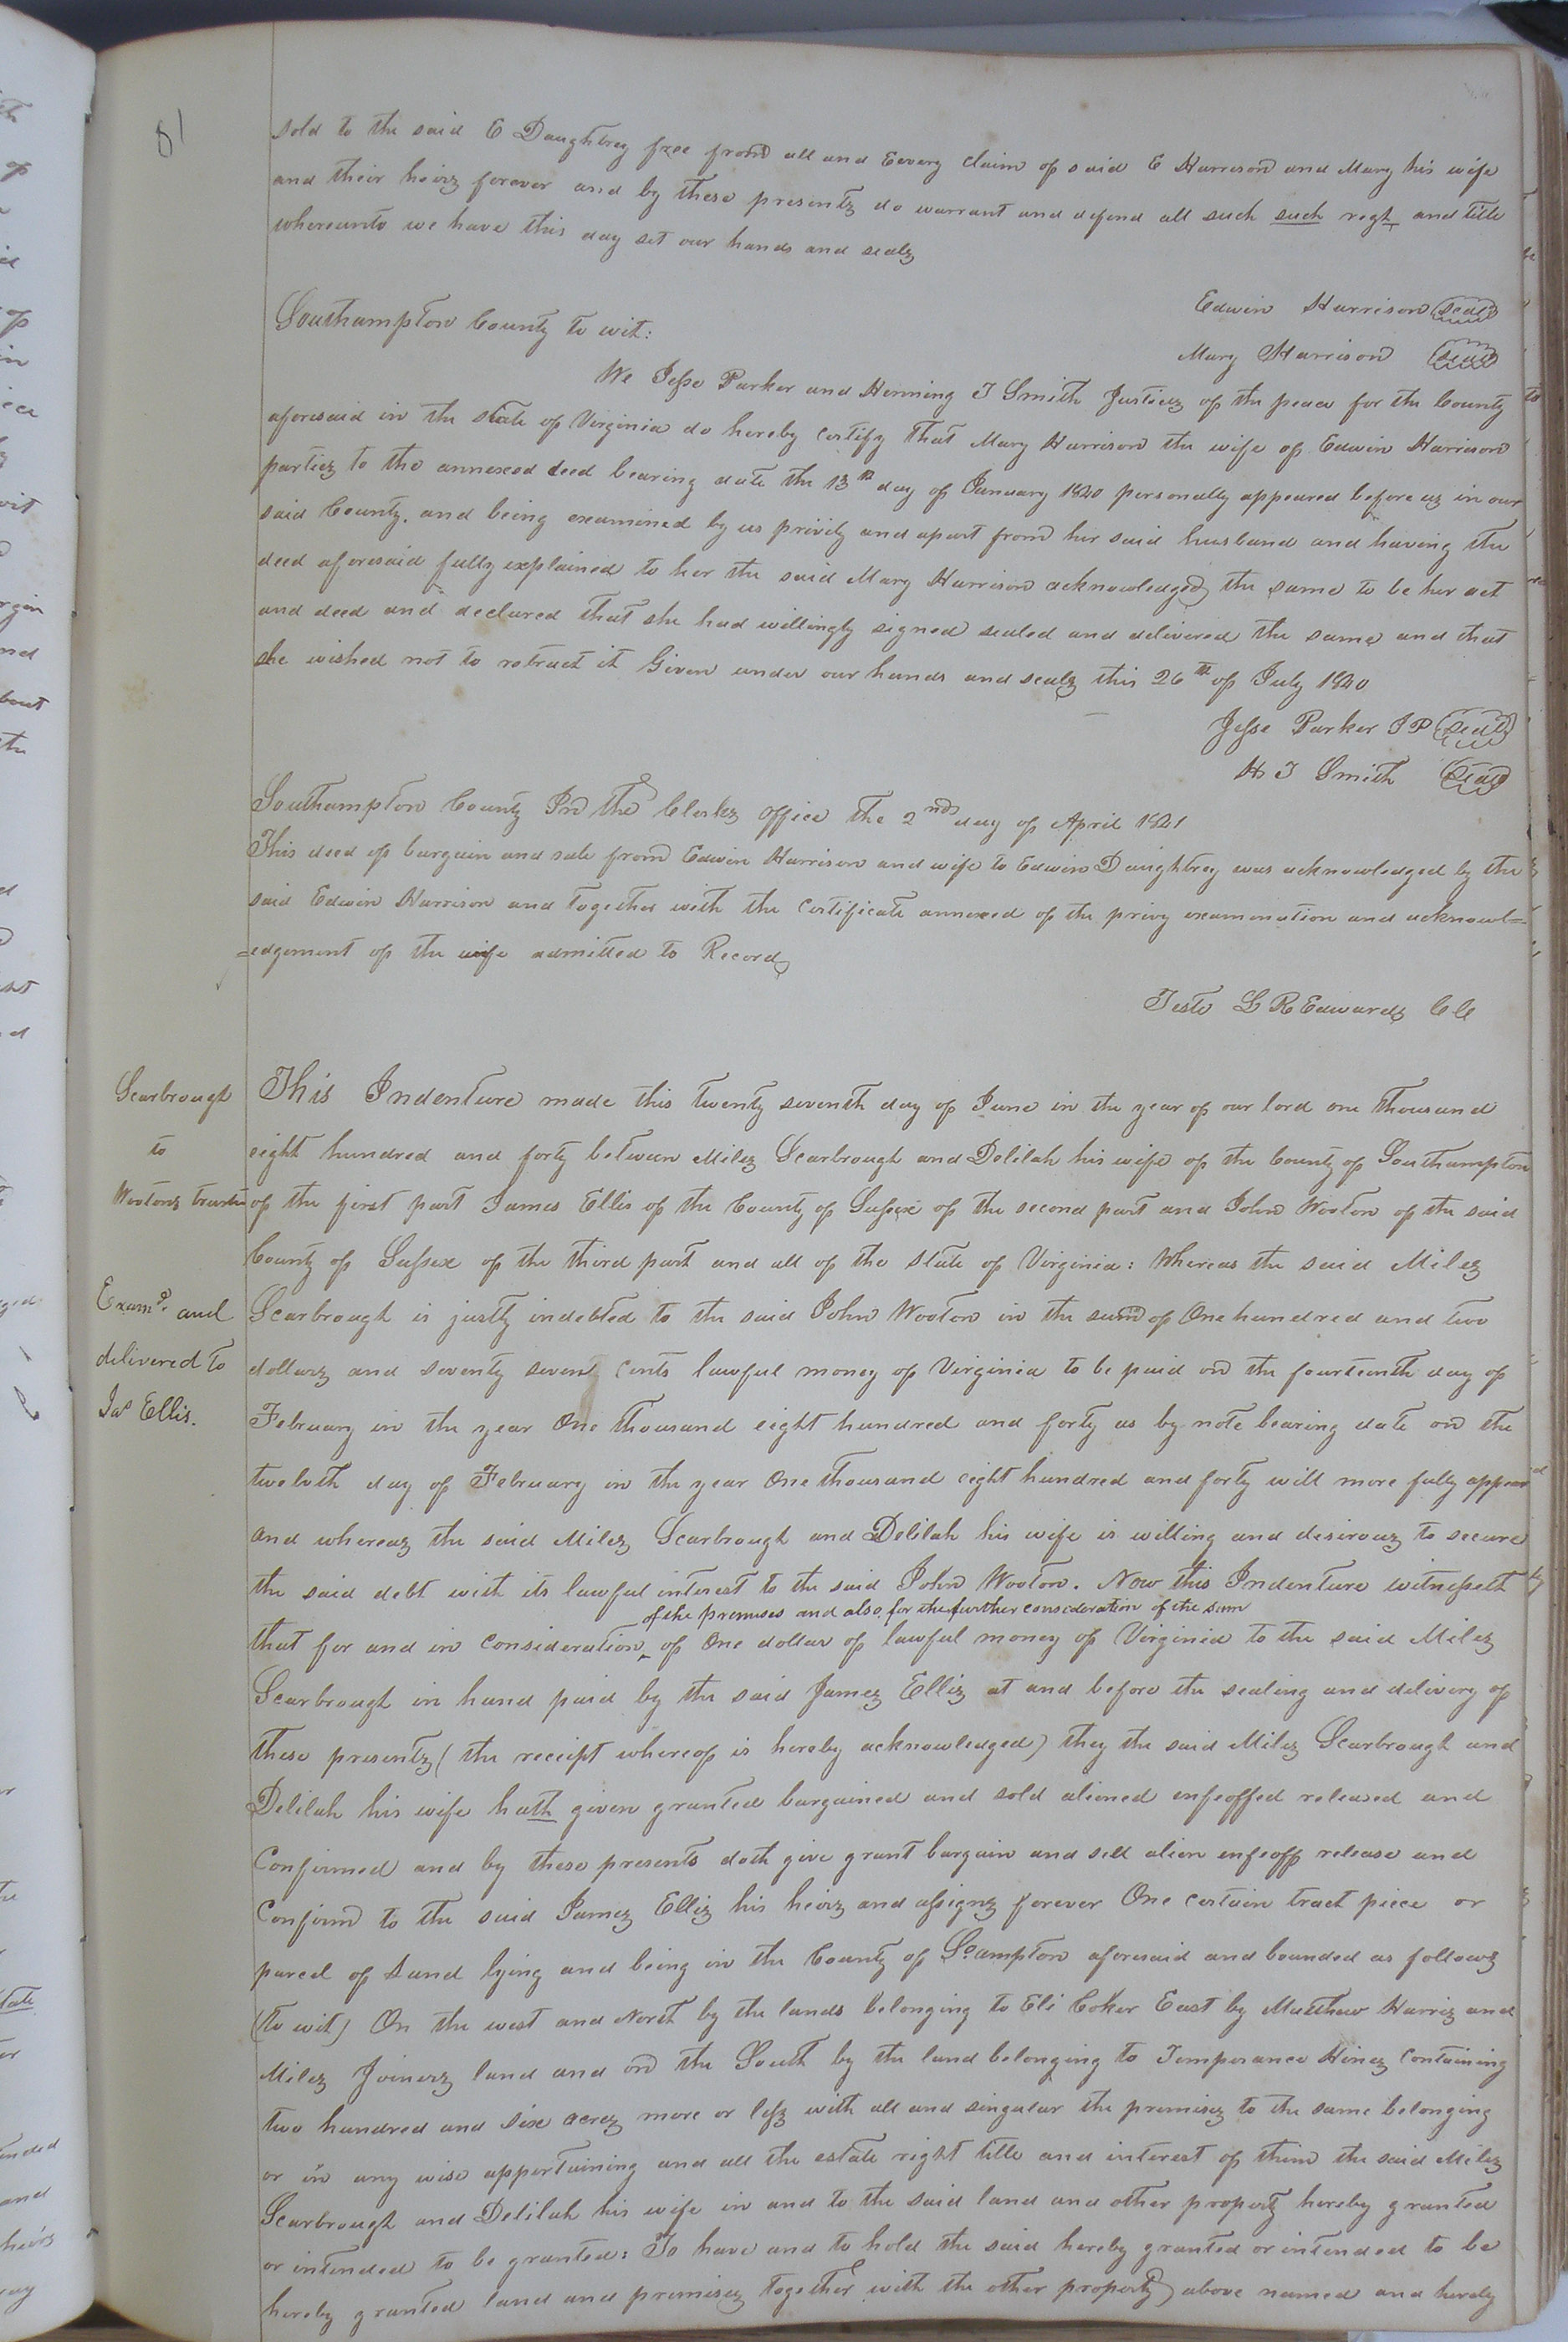 81
sold to the said E Daughtrey free from all and Eevery claim of said E Harrison and Mary his wife
and their heirs forever and by these presents do warrant and defend all such such regh and title
whereunto we have this day set our hands and seals
Edwin Harrison (seal)
Southampton County to wit:
Mary Harrison (seal)
We Jesse Parker and Henning T Smith Justices of the peace for the County
aforesaid in the state of Virginia do hereby certify that Mary Harrison the wife of Edwin Harrison
parties to the annexed deed bearing date the 13th day of January 1840 personally appeared before us in our
said County. and being examined by us privily and apart from her said husband and having the
deed aforesaid fully explained to her the said Mary Harrison acknowledged the same to be her act
and deed and declared that she had willingly signed sealed and delivered the same and that
she wished not to retract it Given under our hands and seals this 26th of July 1840
Jesse Parker JP (seal)
H T Smith (seal)
Southampton County In the Clerks office the 2nd day of April 1841
This deed of bargain and sale from Edwin Harrison and wife to Edwin Daughtrey was acknowledged by the
said Edwin Harrison and together with the certificate annexed of the privy examination and acknowl=
=edgement of the wife admitted to Record
Teste L R Edwards CC
Scarbrough
to
Wootons trustee
Examd. and
delivered to
Jas Ellis.
This Indenture made this twenty seventh day of June in the year of our lord one thousand
eight hundred and forty between Miles Scarbrough and Delilah his wife of the County of Southampton
of the first part James Ellis of the County of Sussex of the second part and John Wooton of the said
County of Sussex of the third part and all of the state of Virginia: Whereas the said Miles
Scarbrough is justly indebted to the said John Wooton in the sum of One hundred and two
dollars and seventy seven cents lawful money of Virginia to be paid on the fourteenth day of
February in the year One thousand eight hundred and forty as by note bearing date on the
twelvth day of February in the year One thousand eight hundred and forty will more fully appear
and whereas the said Miles Scarbrough and Delilah his wife is willing and desirous to secure
the said debt with its lawful interest to the said John Wooton. Now this Indenture witnesseth
of the premises and also for the further consideration of the sum
that for and in consideration ^ of One dollar of lawful money of Virginia to the said Miles
Scarbrough in hand paid by the said James Ellis at and before the sealing and delivery of
these presents (the receipt whereof is hereby acknowledged) they the said Miles Scarbrough and
Delilah his wife hath given granted bargained and sold aliened enfeoffed released and
Confirmed and by these presents doth give grant bargain and sell alien enfeoff release and
Confirm to the said James Ellis his heirs and assigns forever One certain tract piece or
parcel of Land lying and being in the County of Sоampton aforesaid and bounded as follows
(to wit) On the west and North by the lands belonging to Eli Coker East by Matthew Harris and
Miles Joiners land and on the South by the land belonging to Temperance Hines containing
two hundred and six acres more or less with all and singular the premises to the same belonging
or in any wise appertaining and all the estate right title and interest of them the said Miles
Scarbrough and Delilah his wife in and to the said land and other property hereby granted
or intended to be granted: To have and to hold the said hereby granted or intended to be
hereby granted land and premises together with the other property above named and hereby